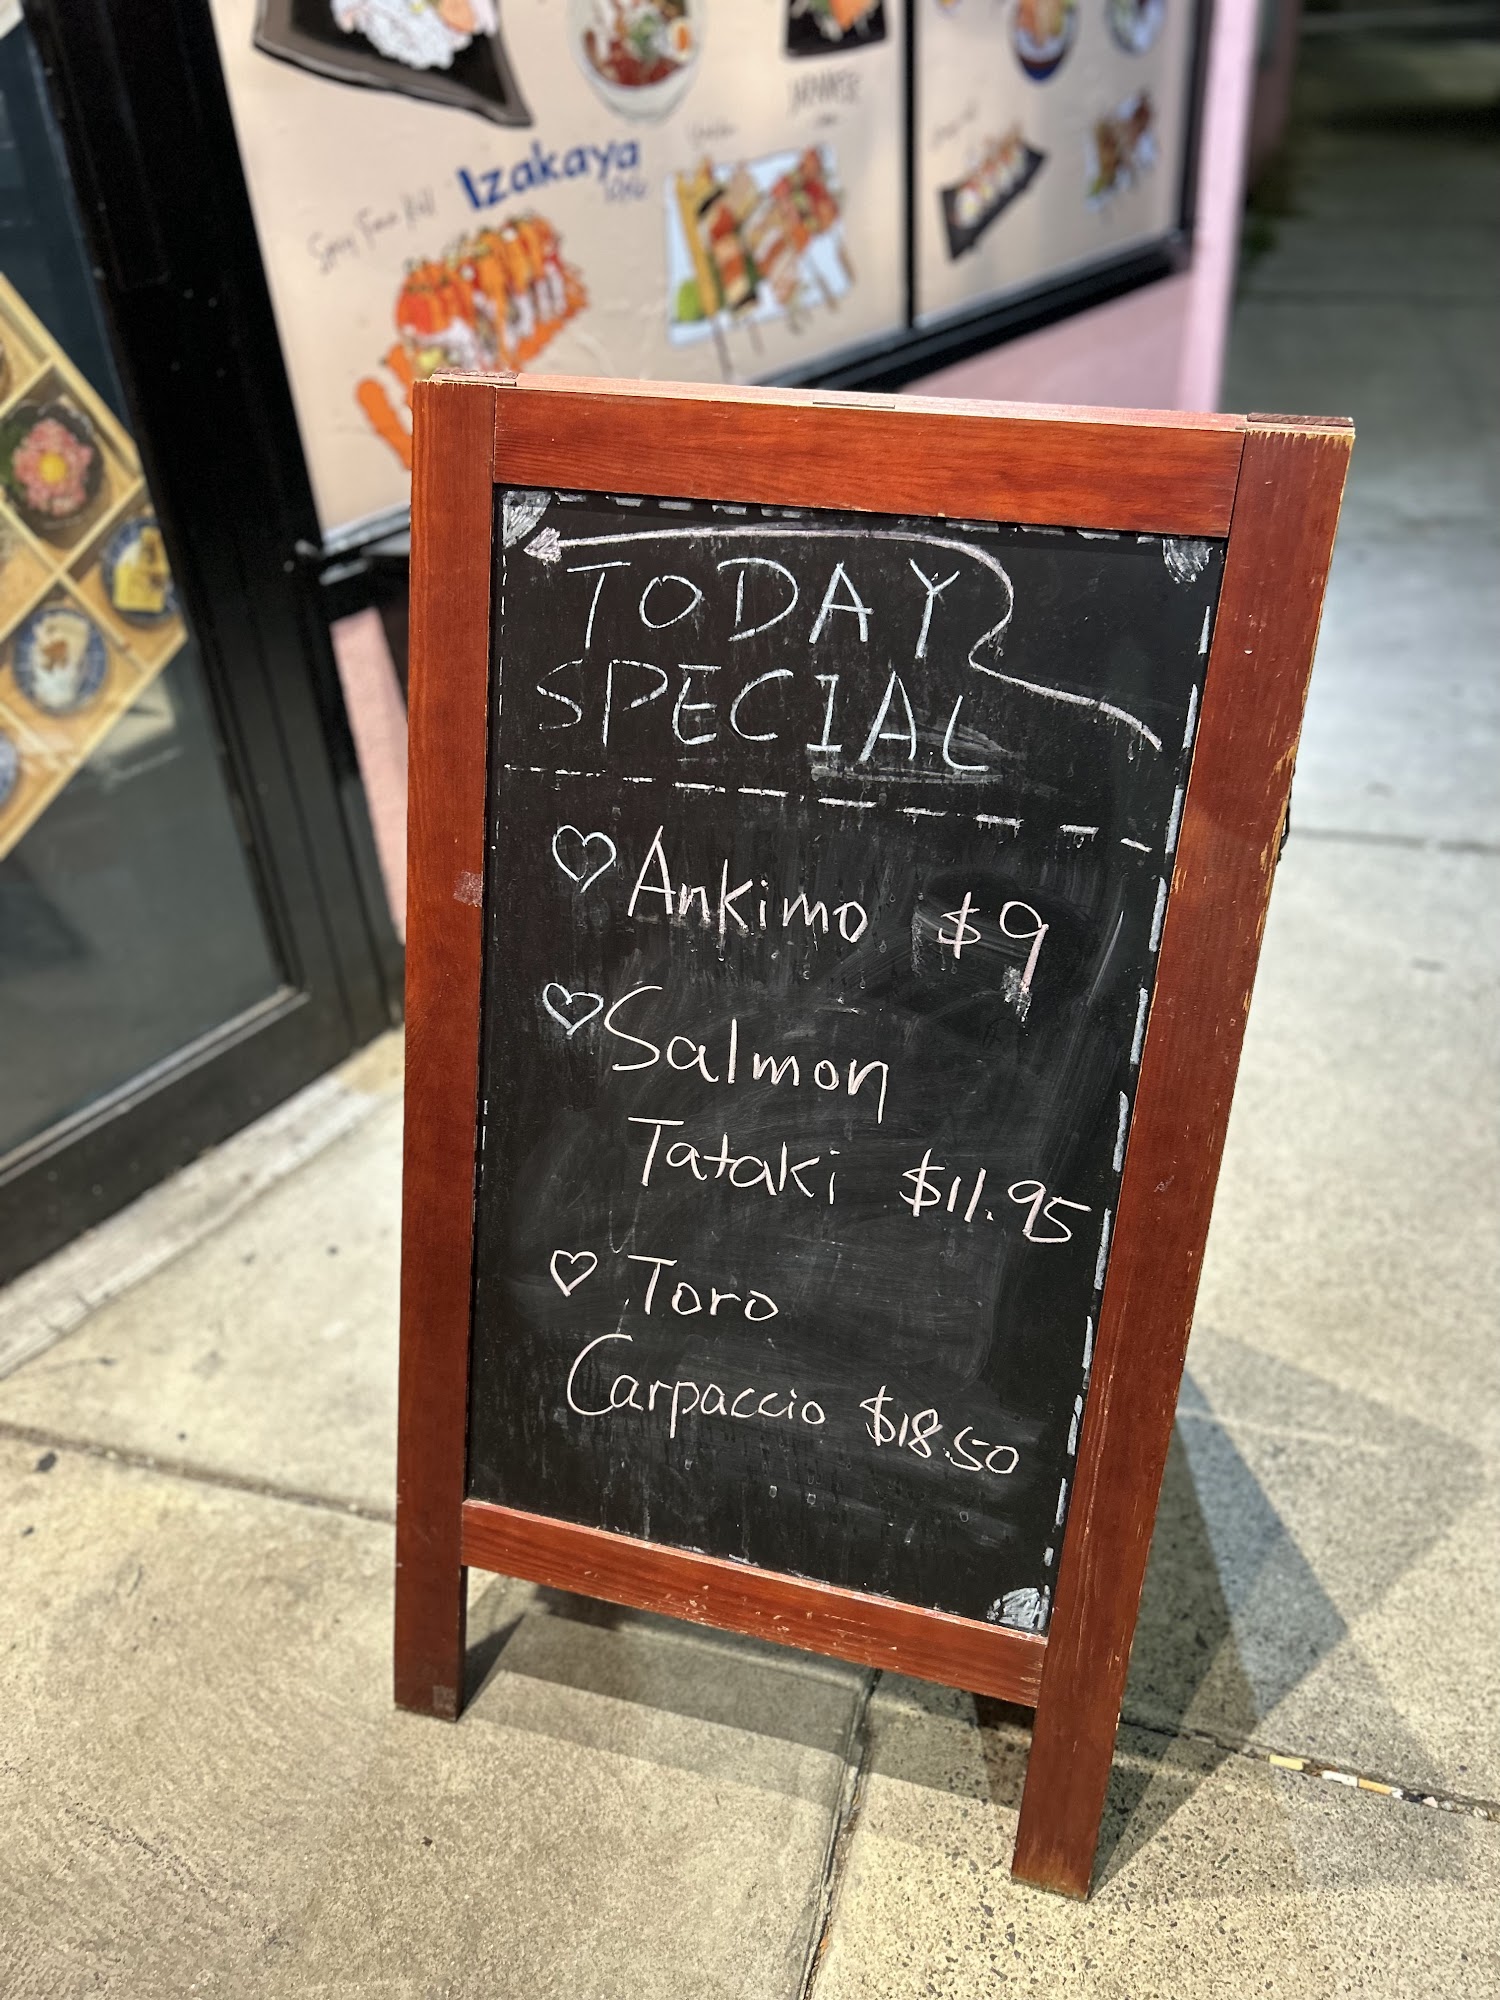 Izakaya
JAPANESE
TODAY
SPECIAL
♡ Ankimo $9
♡ Salmon
Tataki $11.95
♡ Toro
Carpaccio $18.50